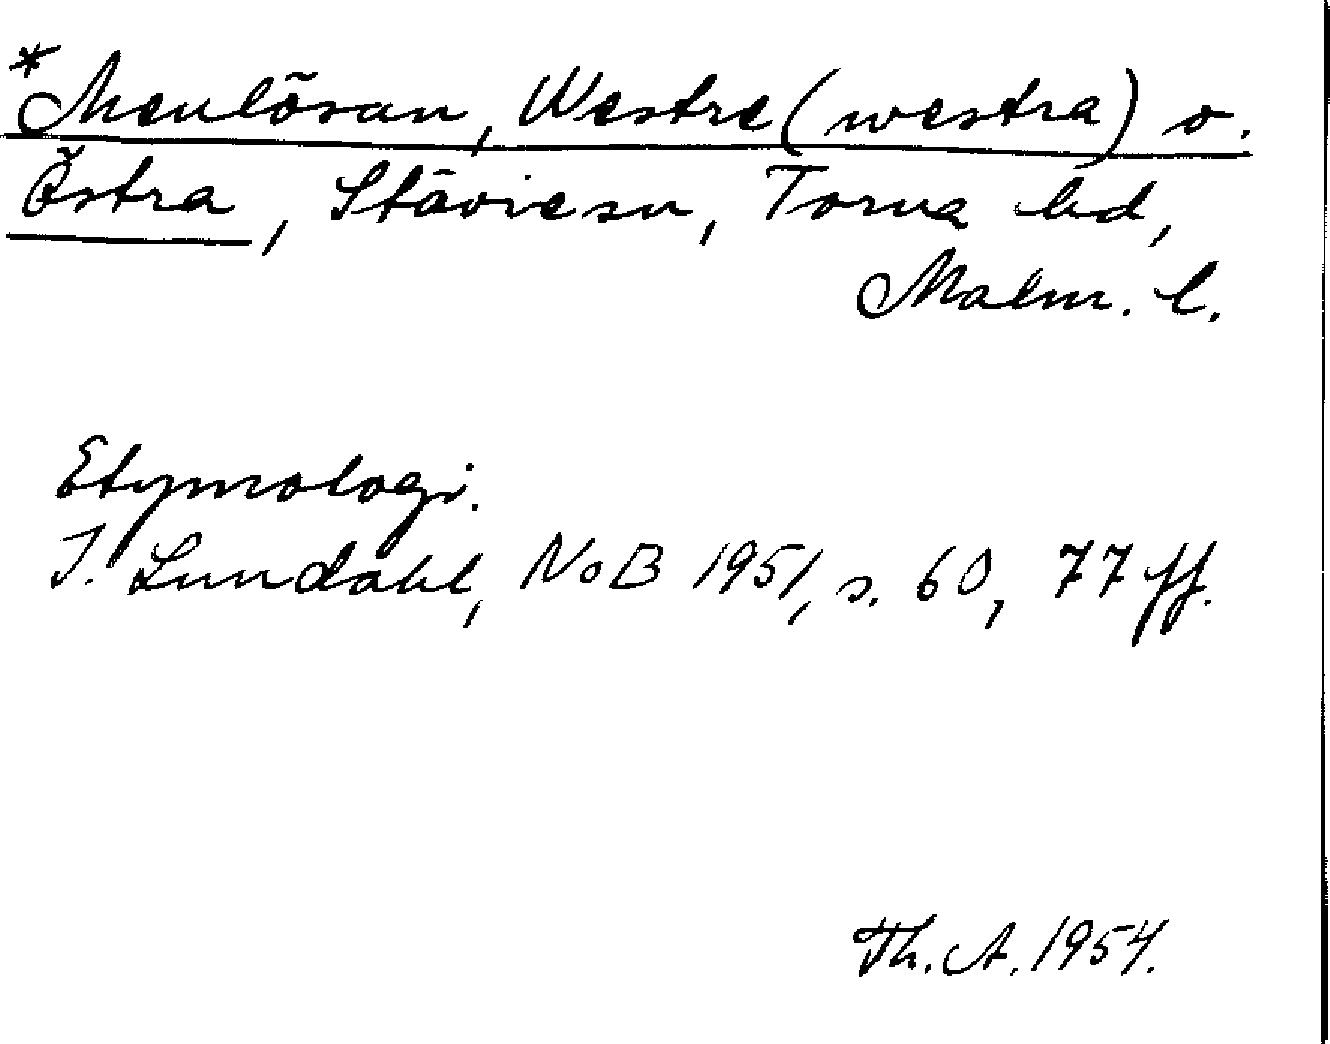 *Menlösan, Westre (westra) o.
Östra, Stävie sn, Torna hd,
Malm. l.
Etymologi.
I. Lundahl, NoB 1951, s. 60, 77 ff.
Th. A. 1954.